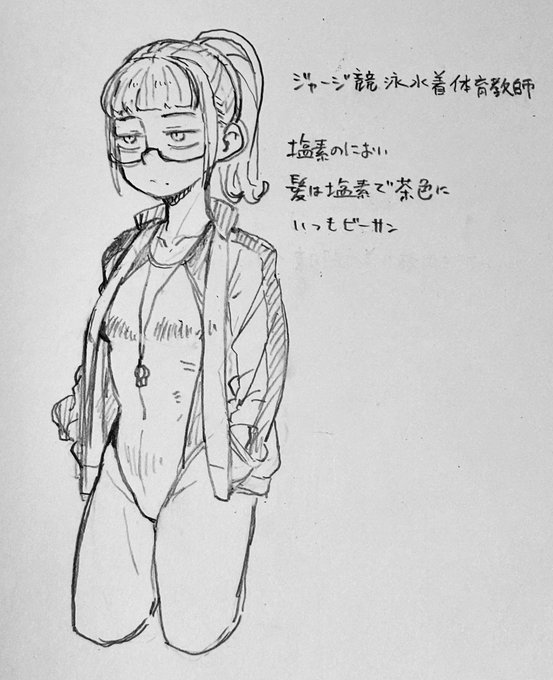 ジャージ競泳水着体育教師
塩素のにおい
髪は塩素で茶色に
いつもビーサン